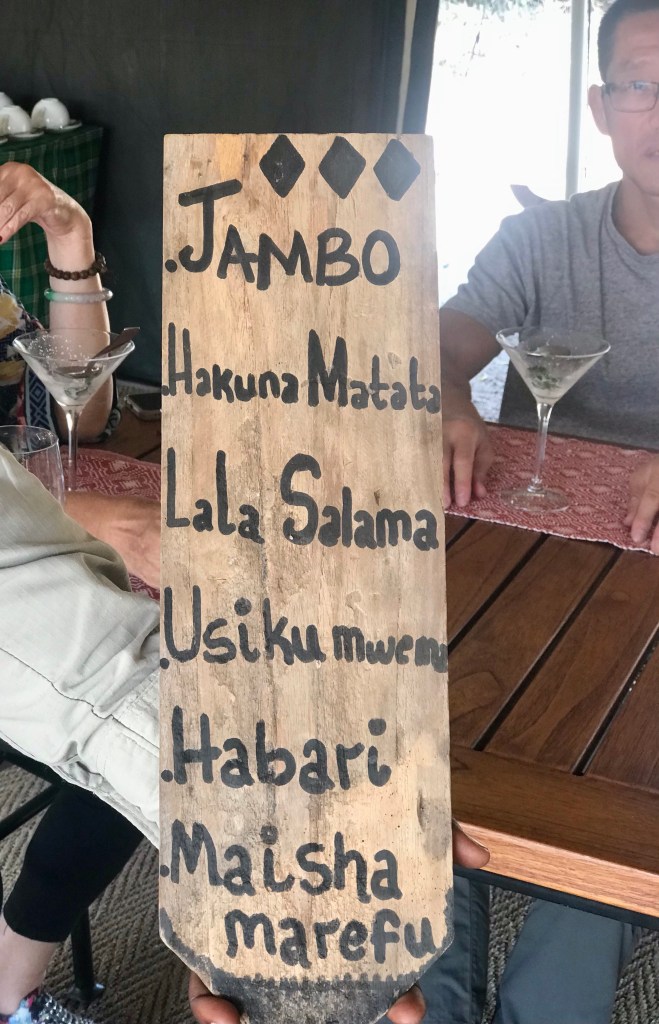 .JAMBO
.Hakuna Matata
Lala Salama
.Usiku mwema
.Habari
.Maisha
marefu